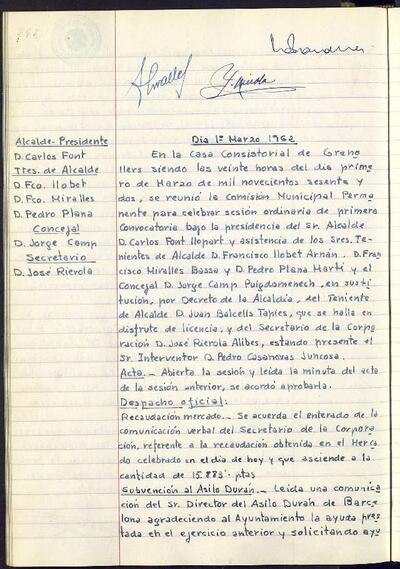 Alcalde-Presidente
D. Carlos Font
Ttes. de Alcalde
D. Fco. Llobet
D. Fco. Miralles
D. Pedro Plana
Concejal
D. Jorge Camp
Secretario
D. José Rierola
Dia 1º Marzo 1962
En la Casa Consistorial de Grano
llers siendo las veinte horas del dia prime
ro de Marzo de mil novecientos sesenta y
dos, se reunió la Comisión Municipal Perma
nente para celebrar sesión ordinaria de primera
convocatoria bajo la presidencia del Sr. Alcalde
D. Carlos Font Llopart y asistencia de los Sres. Te-
nientes de Alcalde D. Francisco Llobet Arnán. D. Fran
cisco Miralles Bassa y D. Pedro Plana Martí y el
Concejal D. Jorge Camp Puigdomenech, en susti
tución, por Decreto de la Alcaldia, del Teniente
de Alcalde D. Juan Balcells Tapies, que se halla en
disfrute de licencia, y del Secretario de la Corpo
ración D. José Rierola Alibes, estando presente el
Sr. Interventor D. Pedro Casanovas Juncosa.
Acta.- Abierta la sesión y leida la minuta del acta
de la sesión anterior, se acordó aprobarla.
Despacho oficial:
Recaudación mercado.- Se acuerda el enterado de la
comunicación verbal del Secretario de la Corpora
ción, referente a la recaudación obtenida en el Merca
do celebrado en el dia de hoy y que asciende a la
cantidad de 15.883'- ptas
Subvención al Asilo Durán.- Leida una comunica
ción del Sr. Director del Asilo Durán de Barce
lona agradeciendo al Ayuntamiento la ayuda pres
tada en el ejercicio anterior y solicitando ayu